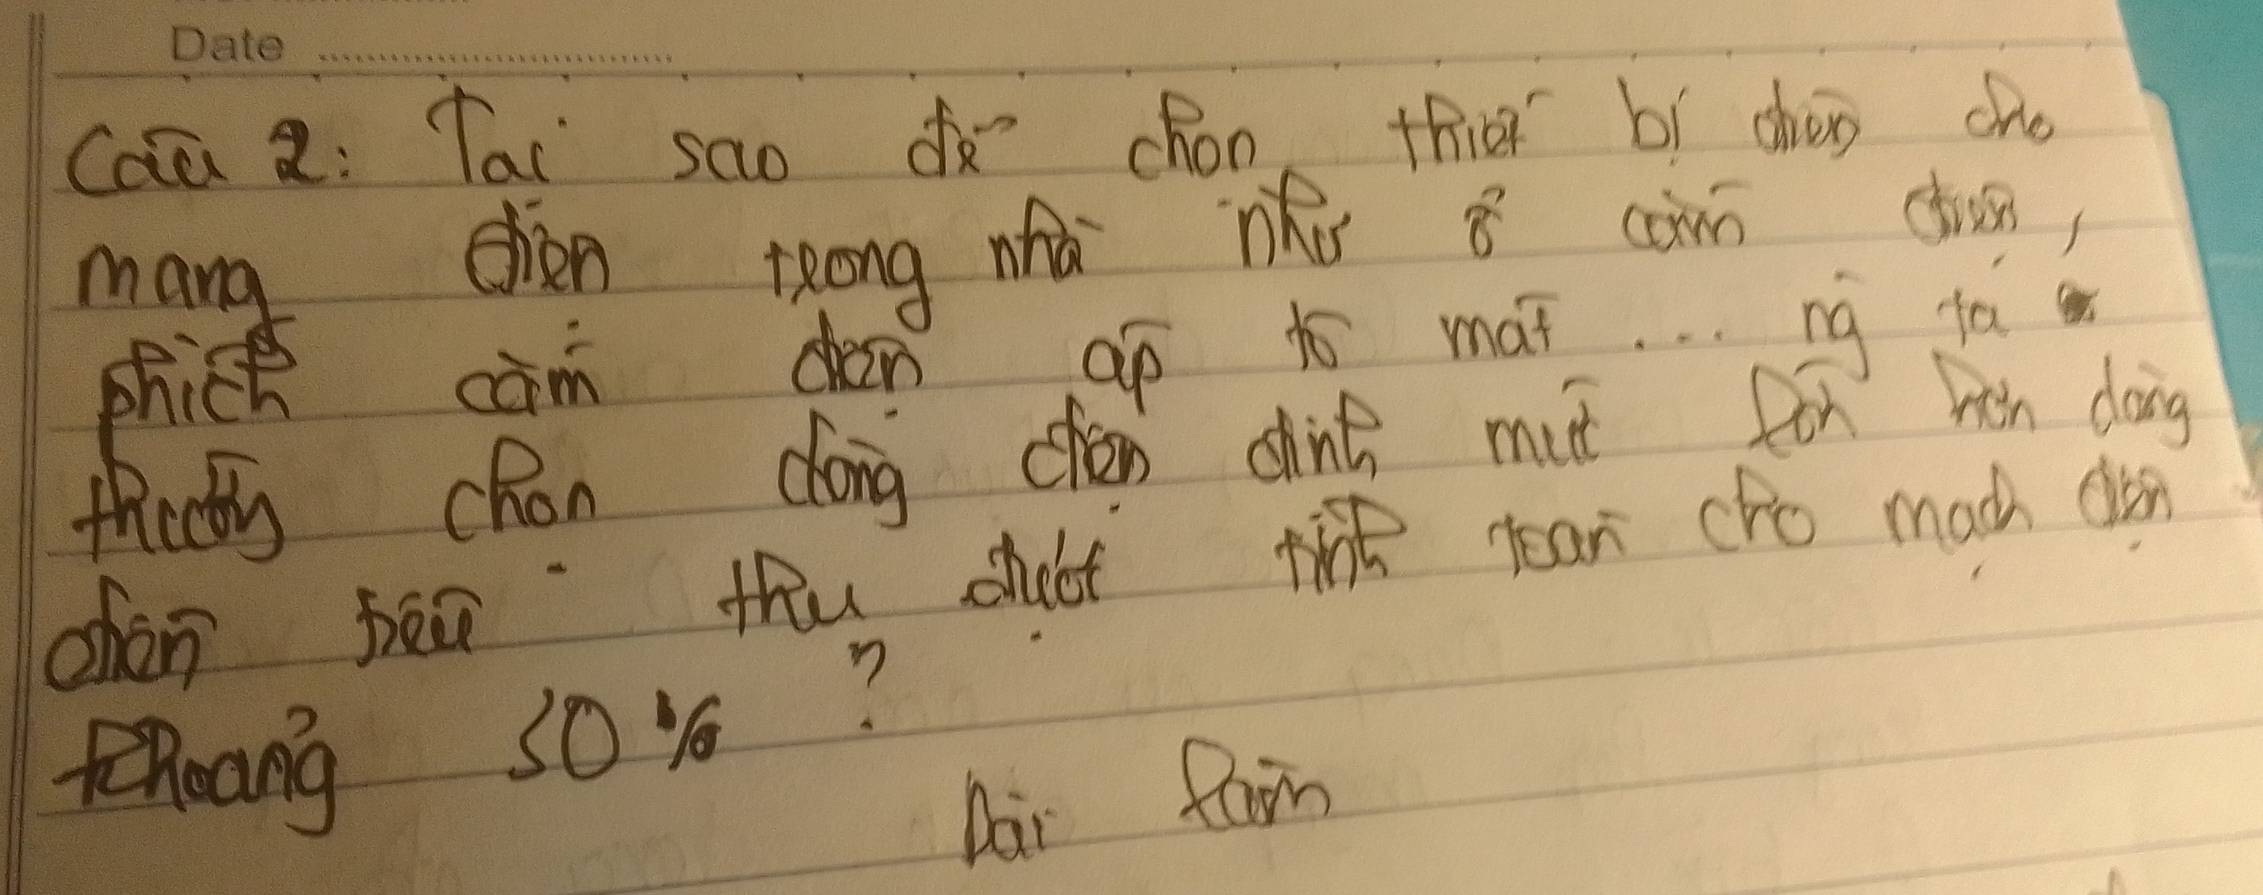 Date
Câu 2: Tại sao để chọn thiết bị điện cho
mạng điện trong nhà như ổ cắm điện,
phích cắm điện áp tô mát... ng ta
thường chọn dòng điện định mức lớn hơn dòng
điện tiêu thụ được tính toán cho mạch điện
khoảng 30% ?
Bài làm